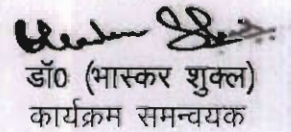 डॉ0 (भास्कर शुक्ल)
कार्यक्रम समन्वयक